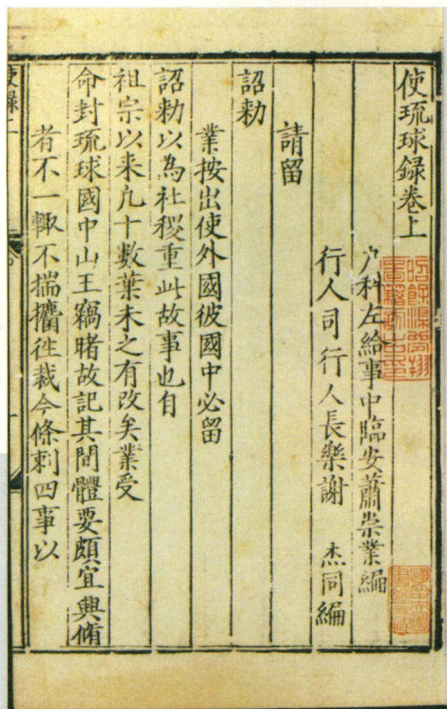 使琉球録卷上
户科左給事中臨安蕭崇業編
行人司行人長樂謝 杰同編
請留
詔勅
業按出使外國彼國中必留
詔勅以為社稷重此故事也自
祖宗以来凢十數葉未之有改矣業受
命封琉球國中山王竊睹故記其間體要頗宜興脩
者不一輙不揣攟徃裁今條刺四事以
使録上